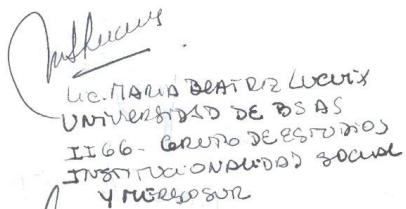 Lic. MARIA BEATRIZ LUCUIX
UNIVERSIDAD DE BS AS
IIGG - GRUPO DE ESTUDIOS
INSTITUCIONALIDAD SOCIAL
Y MERCOSUR